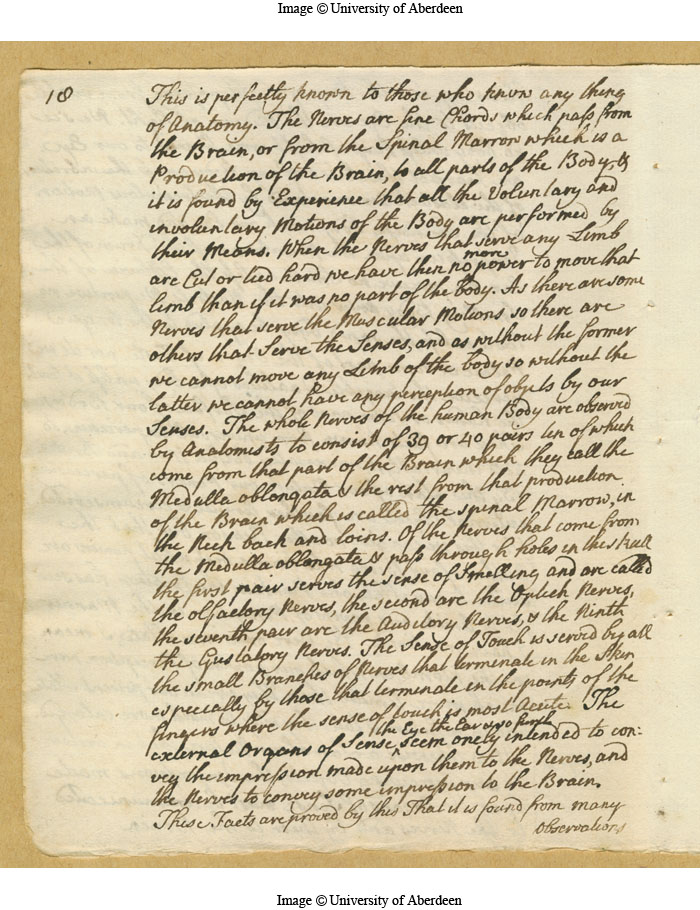 Image © University of Aberdeen
18
This is perfectly known to those who know any thing
of Anatomy. The Nerves are fine Chords which pass from
the Brain, or from the Spinal Marrow which is a
Production of the Brain, to all parts of the Body, &
it is found by Experience that all the voluntary and
involuntary Motions of the Body are performed by
their Means. When the Nerves that serve any Limb
are Cut or tied hard we have then no more power to move that
limb than if it was no part of the body. As there are some
Nerves that serve the Muscular Motions so there are
others that Serve the Senses, and as without the former
we cannot move any Limb of the body so without the
latter we cannot have any perception of obje[c]ts by our
Senses. The whole Nerves of the human Body are observed
by Anatomists to consist of 39 or 40 pairs ten of which
come from that part of the Brain which they call the
Medulla oblongata & the rest from that production
of the Brain which is called the spinal Marrow, in
the Neck back and loins. Of the Nerves that come from
the Medulla oblongata & pass through holes in the skull
the first pair serves the sense of Smelling and are called
the olfactory Nerves, the second are the Optick Nerves,
the seventh pair are the Auditory Nerves, & the Ninth
the Gustatory Nerves. The Sense of Touch is served by all
the small Branches of Nerves that terminate in the Skin
especially by those that terminate in the points of the
fingers where the sense of touch is most Acute. The
external Organs of Sense, the Eye the Ear & so forth seem onely intended to con:
vey the impression made upon them to the Nerves, and
the Nerves to convey some impression to the Brain.
These Facts are proved by this That it is found from many
Observations
Image © University of Aberdeen